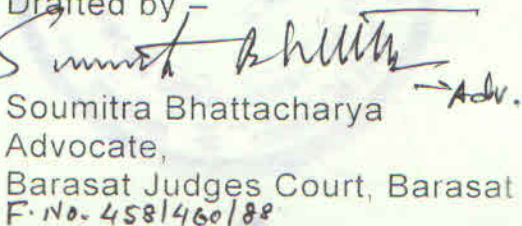 Drafted by –
Adv.
Soumitra Bhattacharya
Advocate,
Barasat Judges Court, Barasat
F. No. 458/460/88